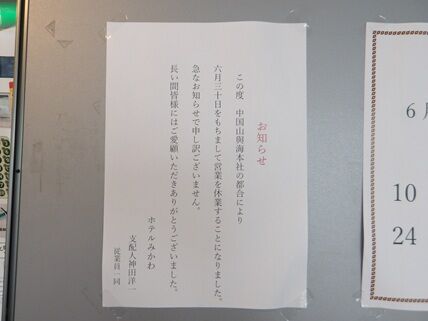 お知らせ
この度　中国山與海本社の都合により
六月三十日をもちまして営業を休業することになりました。
急なお知らせで申し訳ございません。
長い間皆様にはご愛顧いただきありがとうございました。
ホテルみかわ
支配人神田洋一
従業員一同
6月
10
24